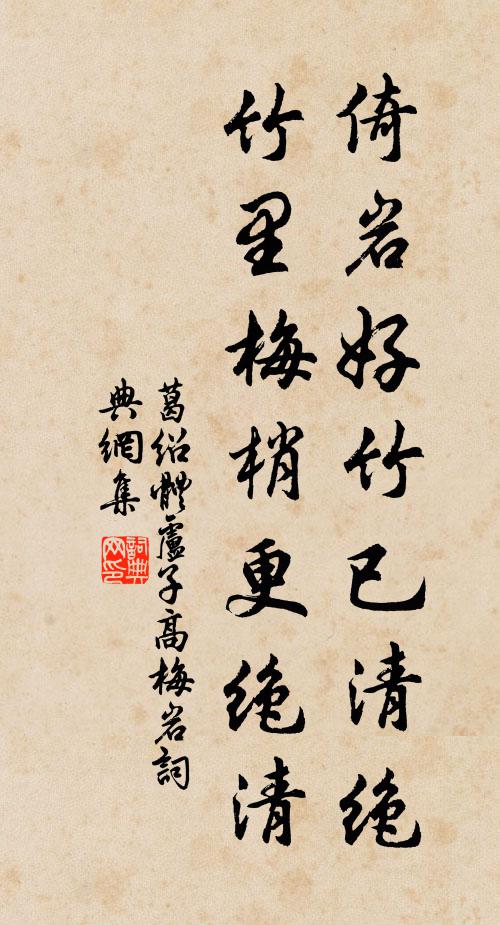 倚岩好竹已清绝
竹里梅梢更绝清
葛绍體盧子高梅岩詞
典網集
詞典网印